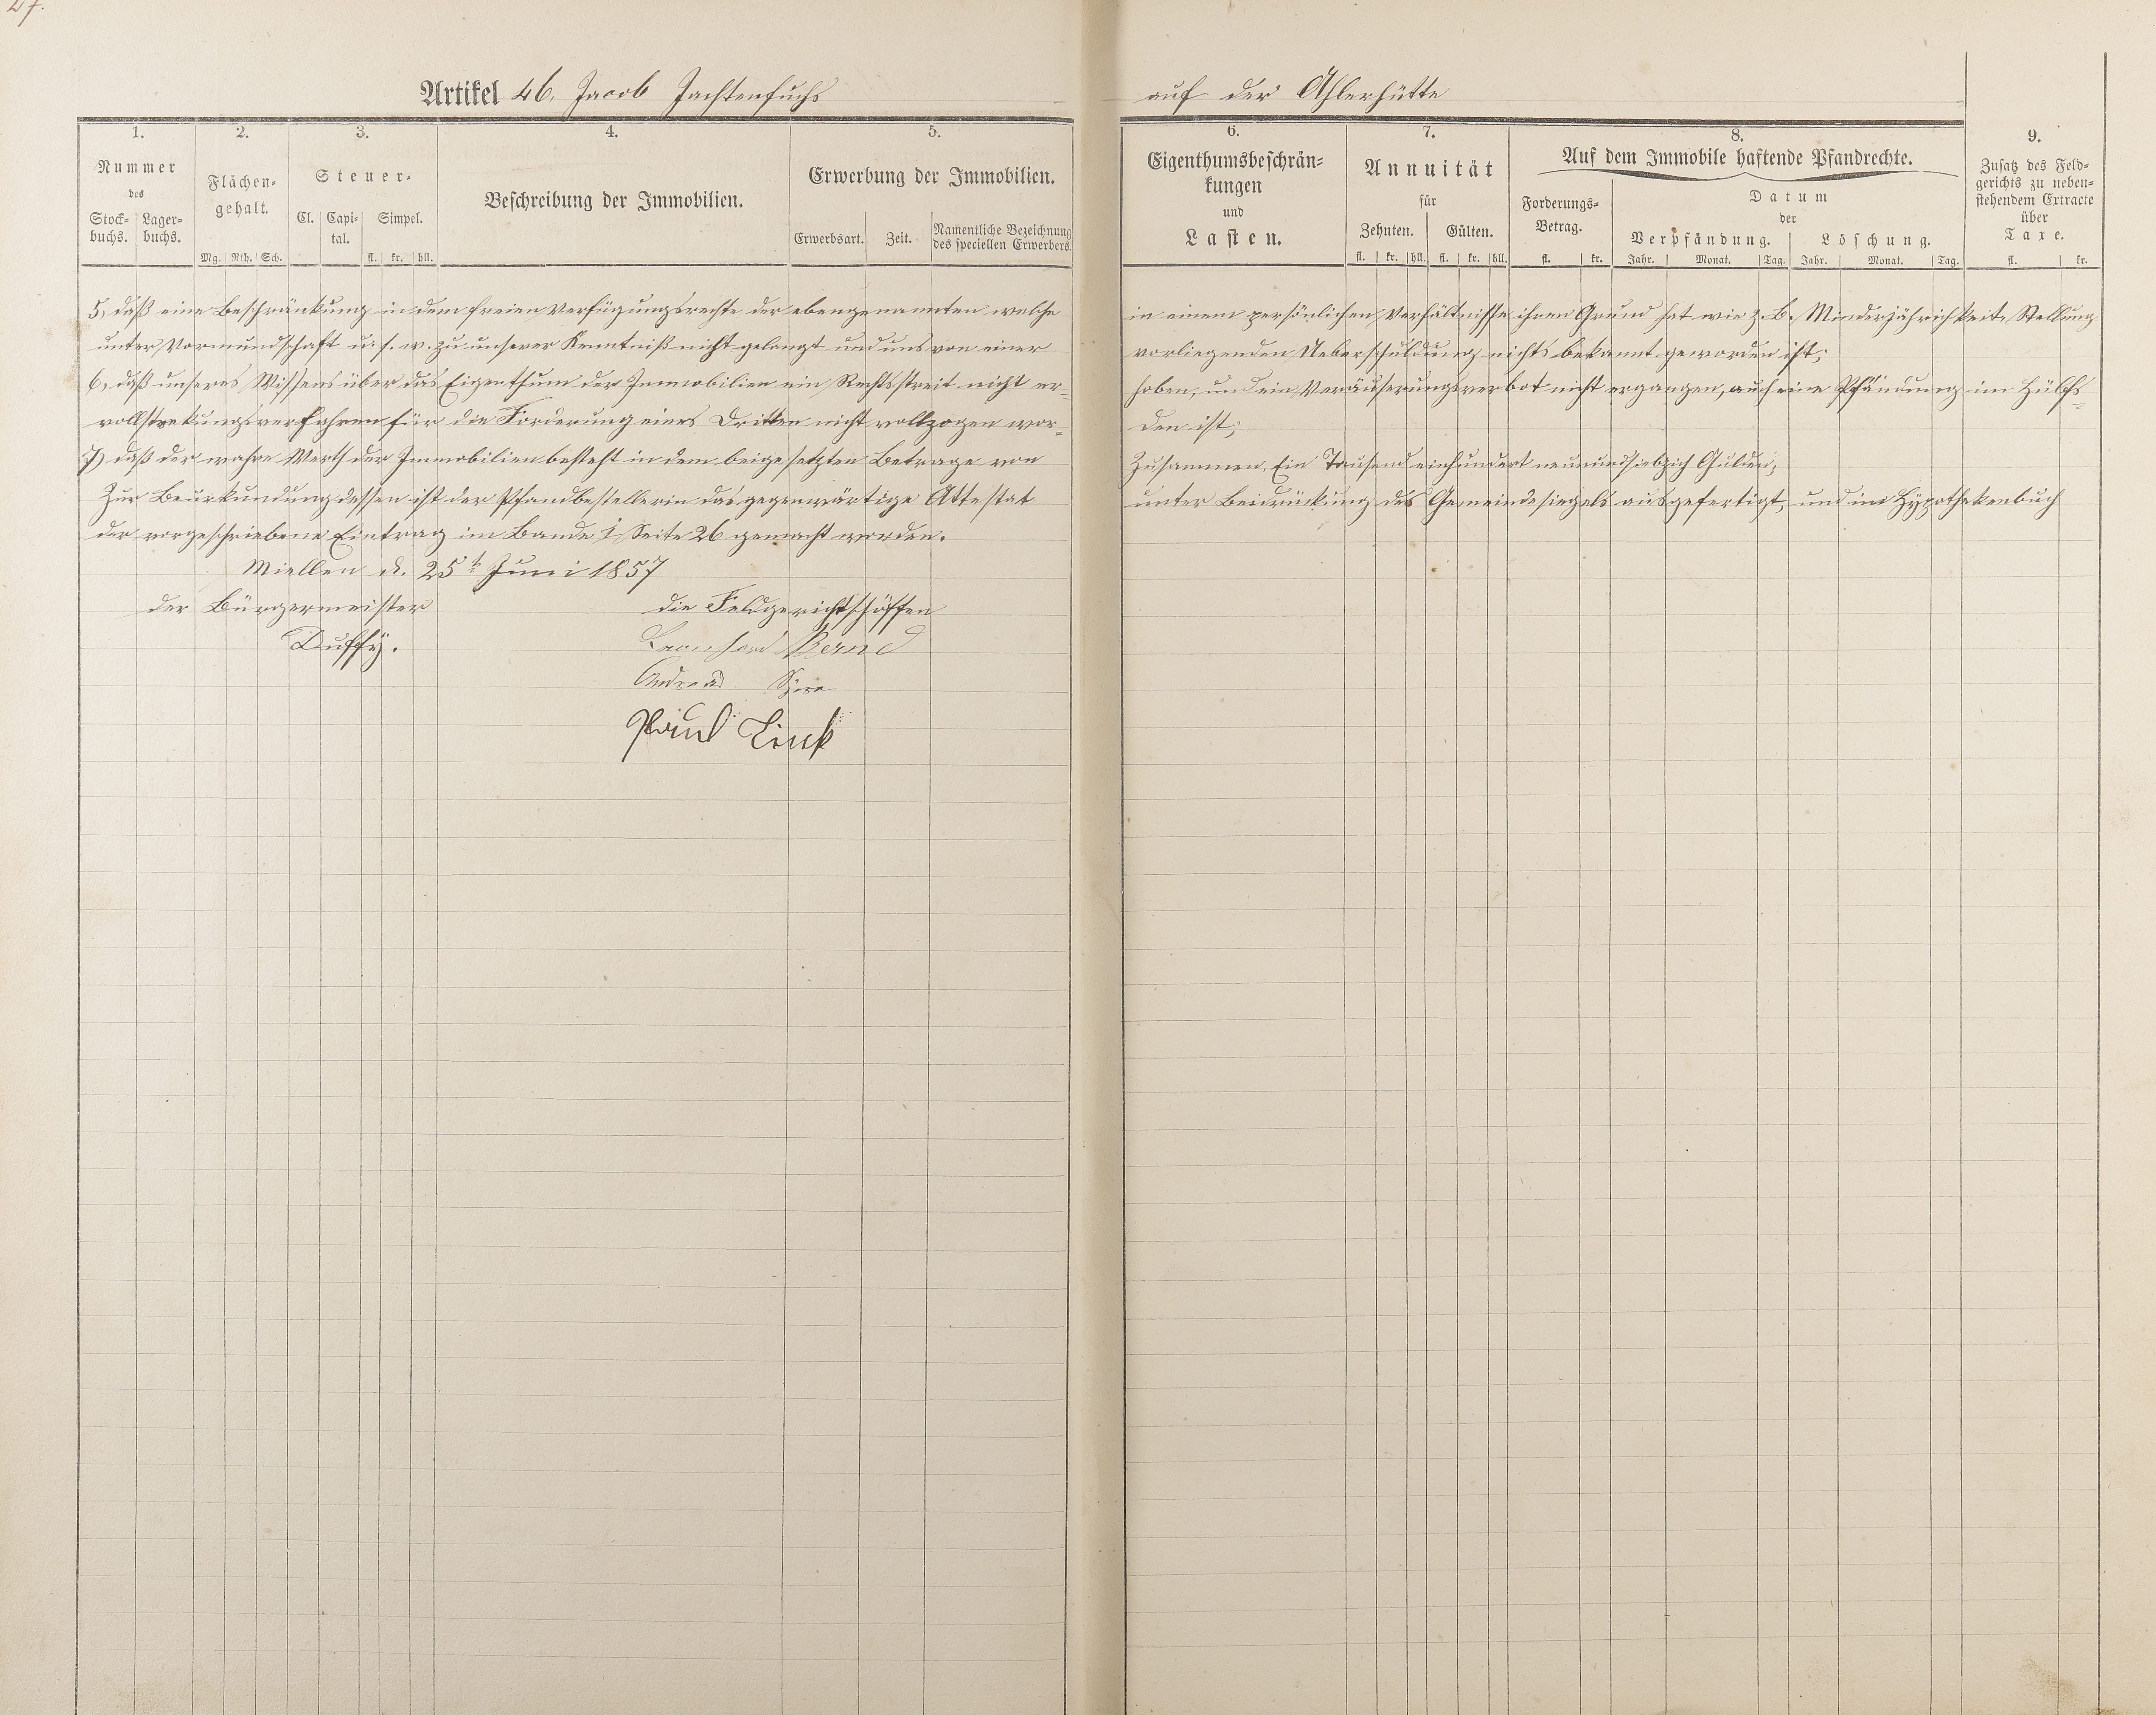 27.
Artikel 46. Jacob Jachtenfuchs auf der Ahlerhütte
1. 2. 3. 4. 5. 6. 7. 8. 9.
Nummer des
Stock-buchs. Lager-buchs.
Flächen-gehalt.
Mg. Rth. Sch.
Steuer-
Cl. Capi-tal. Simpel.
fl. kr. hll.
Beschreibung der Immobilien.
Erwerbung der Immobilien.
Erwerbsart. Zeit. Namentliche Bezeichnung des speciellen Erwerbers.
Eigenthumsbeschrän-
kungen
und
Lasten.
Annuität
für
Zehnten. Gülten.
fl. kr. hll. fl. kr. hll.
Auf dem Immobile haftende Pfandrechte.
Forderungs-
Betrag.
fl. kr.
Datum
der
Verpfändung. Löschung.
Jahr. Monat. Tag. Jahr. Monat. Tag.
Zusatz des Feld-
gerichts zu neben-
stehendem Extracte
über
Taxe.
fl. kr.
5, daß eine Beschränkung in dem freien Verfügungsrechte der ebengenannten welche in einem persönlichen Verhältnisse ihren Grund hat wie z. B. Minderjährichkeit, Stellung
unter Vormundschaft u. s. w. zu unserer Kenntniß nicht gelangt und uns von einer vorliegenden Ueberschuldung nichts bekannt geworden ist;
6, daß unseres Wissens über das Eigenthum der Immobilien ein Rechtsstreit nicht er- hoben, und ein Veräuserungsverbot nicht ergangen, auch eine Pfändung im Hülfs-
vollstrekungsverfahren für die Forderung eines Dritten nicht vollzogen wor- den ist;
7) daß der wahre Werth der Immobilien besteht in dem beigesetzten Betrage von Zusammen Ein Tausend einhundert neunundsiebzich Gulden,
Zur Beurkundung dessen ist der Pfandbestellerin das gegenwärtige Attestat unter Beidrückung des Gemeindesiegels ausgefertigt, und im Hypothekenbuch
der vorgeschriebene Eintrag im Bande 1 Seite 26 gemacht worden.
Miellen d. 25t Juni 1857
der Bürgermeister die Feldgerichtschöffen
Duffÿ. Leonhard Bernd
Andreas
Paul Link